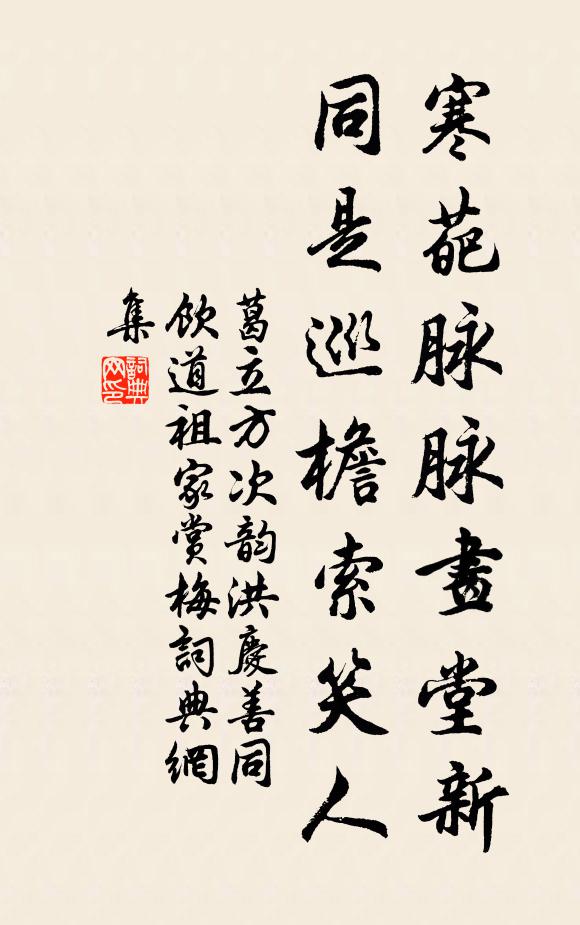 寒葩脉脉畫堂新
同是巡檐索笑人
葛立方次韵洪慶善同
飲道祖家赏梅詞典網
集
詞典
网印